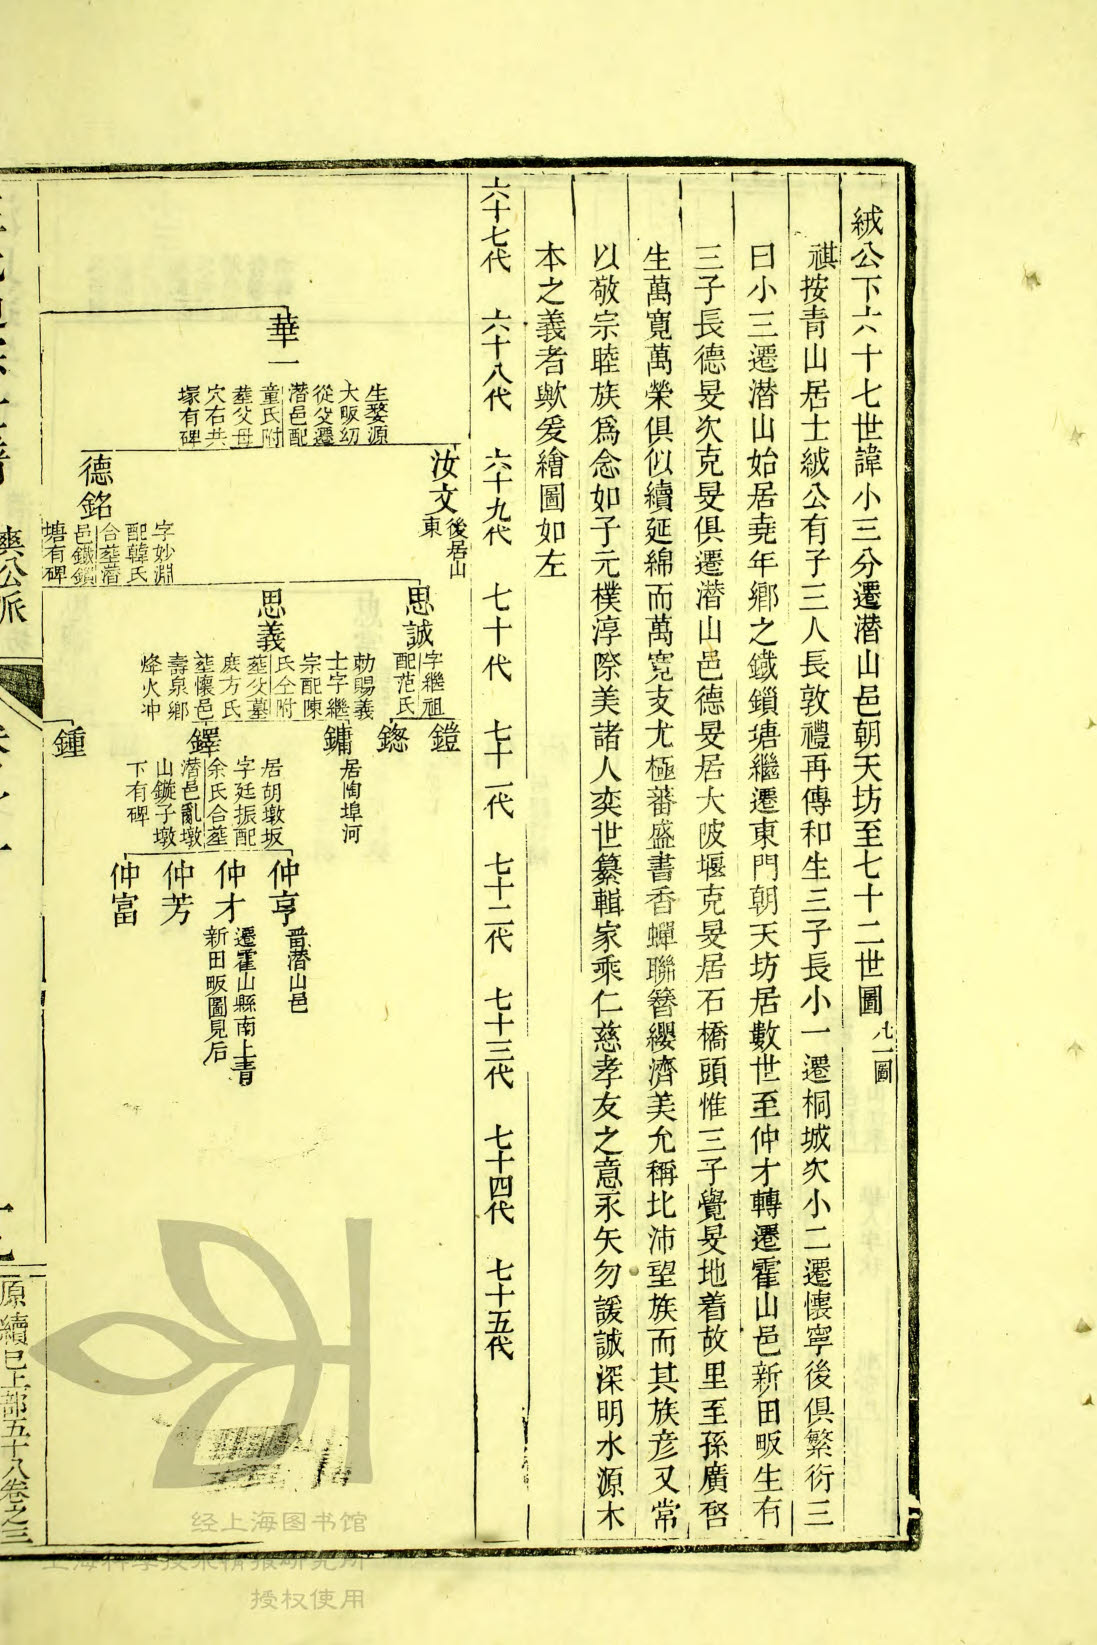 絨公下六十七世諱小三分遷潛山邑朝天坊至七十二世圖 九一圖
祺按青山居士絨公有子三人長敦禮再傳和生三子長小一遷桐城次小二遷懷寧後俱繁衍三
曰小三遷潛山始居堯年鄉之鐵鎖塘繼遷東門朝天坊居數世至仲才轉遷霍山邑新田畈生有
三子長德旻次克旻俱遷潛山邑德旻居大陂堰克旻居石橋頭惟三子覺旻地着故里至孫廣啓
生萬寬萬榮俱似續延綿而萬寬支尤極蕃盛書香蟬聯簪纓濟美允稱比沛望族而其族彥又常
以敬宗睦族爲念如子元樸淳際美諸人奕世纂輯家乘仁慈孝友之意永矢勿諼誠深明水源木
本之義者歟爰繪圖如左
六十七代 六十八代 六十九代 七十代 七十一代 七十二代 七十三代 七十四代 七十五代
華一
生婺源
大畈幼
從父遷
潛邑配
童氏附
葬父母
穴右共
塚有碑
汝文
後居山
東
德銘
字妙淵
配韓氏
合葬潛
邑鐵鎖
塘有碑
思誠
字繼祖
配范氏
思義
勅賜義
士字繼
宗配陳
氏仝附
葬父墓
庶方氏
葬懷邑
壽泉鄉
烽火冲
鎧
鍃
鏞
居陶埠河
鐸
居胡墩坂
字廷振配
余氏合葬
潛邑亂墩
山鏇子墩
下有碑
鍾
仲亨
畱潛山邑
仲才
遷霍山縣南上青
新田畈圖見后
仲芳
仲富
公派
原續巳上部五十八卷之三
经上海图书馆
上海科学技术情报研究所
授权使用